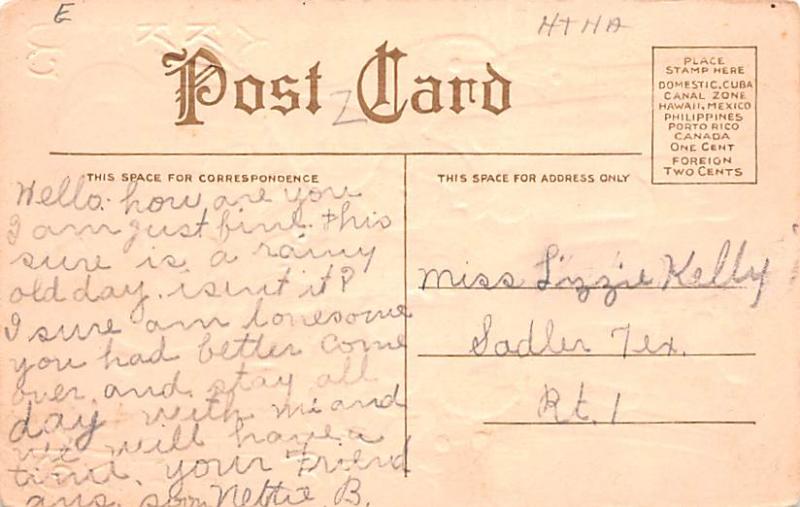 E
HTHA
Post Card
Z
PLACE
STAMP HERE
DOMESTIC, CUBA
CANAL ZONE
HAWAII, MEXICO
PHILIPPINES
PORTO RICO
CANADA
ONE CENT
FOREIGN
TWO CENTS
THIS SPACE FOR CORRESPONDENCE
Hello. how are you
I am just fine. this
sure is a rainy
old day. isent it?
I sure am lonesome
you had better come
over. and. stay all
day with me and
we will have a
time. your Friend
ans. soon Nettie B.
THIS SPACE FOR ADDRESS ONLY
Miss Lizzie Kelly
Sadler Tex.
Rt. 1